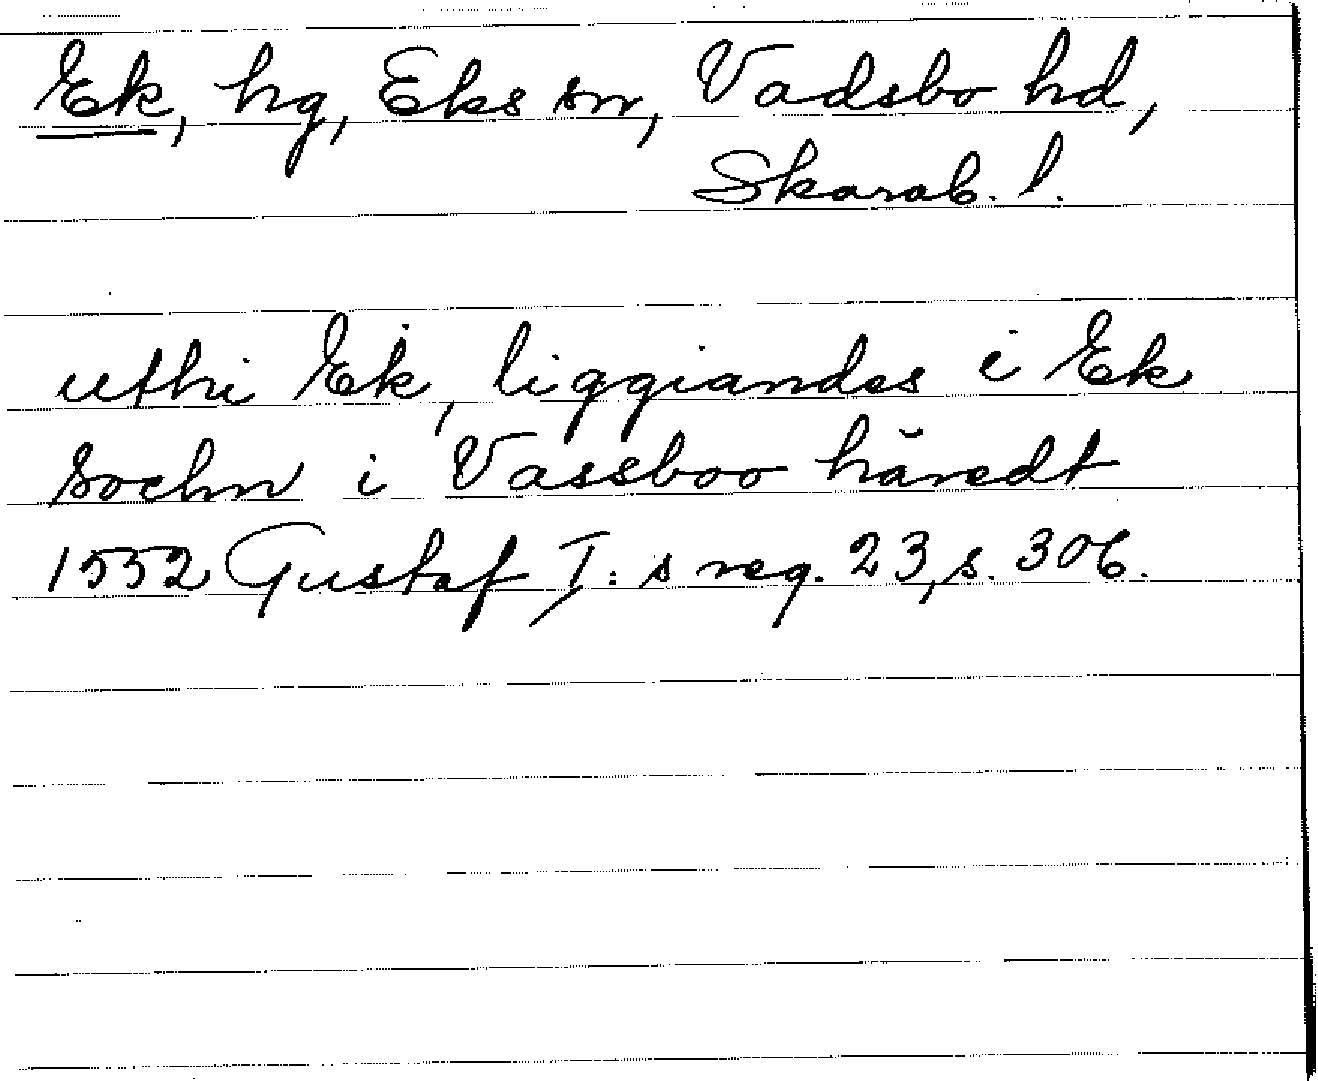 Ek, hg, Eks sn, Vadsbo hd,
Skarab. l.
uthi Ek, liggiandes i Ek
sochn i Vassboo häredt
1552 Gustaf I:s reg. 23, s. 306.